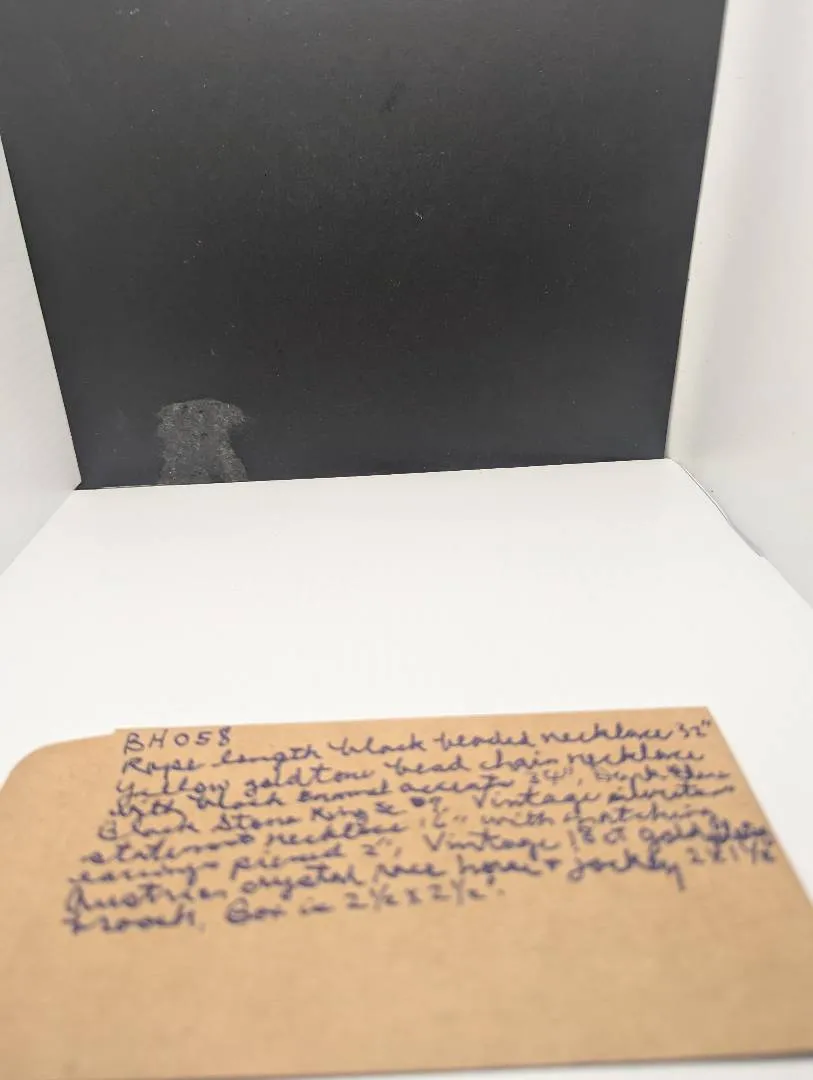 BH058
Rope length black beaded necklace 32"
yellow goldtone bead chain necklace
with black enamel accents 34",
Black Stone Ring Vintage silvertone
statement necklace, with matching
earrings pierced 2", Vintage 18 ct gold
Austrian crystal race horse + jockey 2 x 1 1/2
brooch. Box is 2 1/2 x 2 1/2".